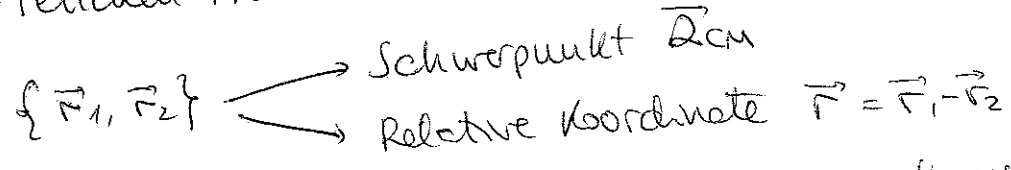 Schwerpunkt R⃗CM
{r⃗1, r⃗2}
Relative Koordinate r⃗ = r⃗1 - r⃗2